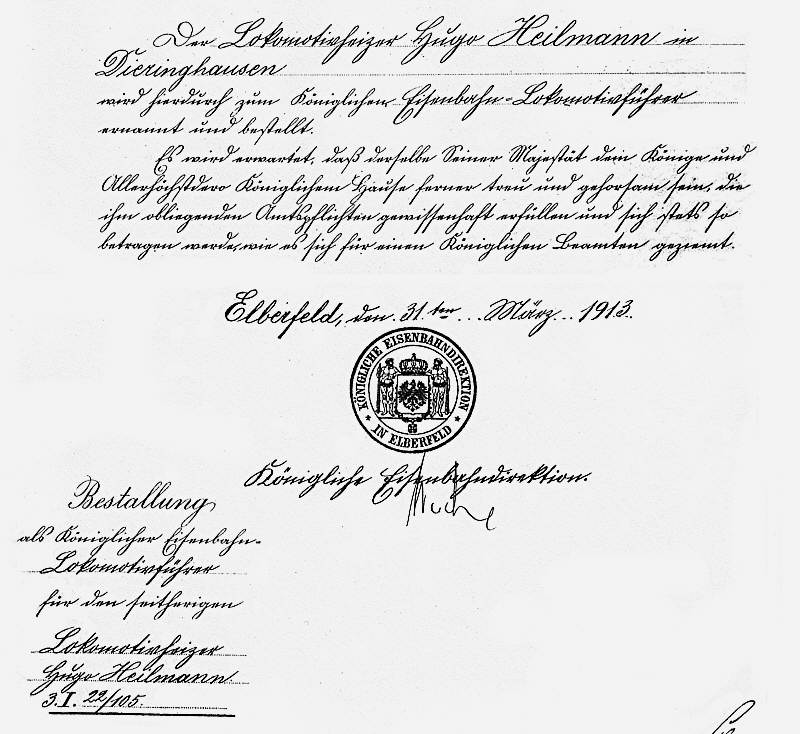 Der Lokomotivheizer Hugo Heilmann in
Dieringhausen
wird hierdurch zum Königlichen Eisenbahn-Lokomotivführer
ernannt und bestellt.
Es wird erwartet, daß derselbe Seiner Majestät dem Könige und
Allerhöchstdero Königlichem Hause ferner treu und gehorsam sein, die
ihm obliegenden Amtspflichten gewissenhaft erfüllen und sich stets so
betragen werde, wie es sich für einen Königlichen Beamten geziemt.
Elberfeld, den 31.ten März 1913.
KÖNIGLICHE EISENBAHNDIREKTION
* IN ELBERFELD *
Königliche Eisenbahndirektion.
Bestallung
als Königlicher Eisenbahn-
Lokomotivführer
für den seitherigen
Lokomotivheizer
Hugo Heilmann
3.I. 22/105.